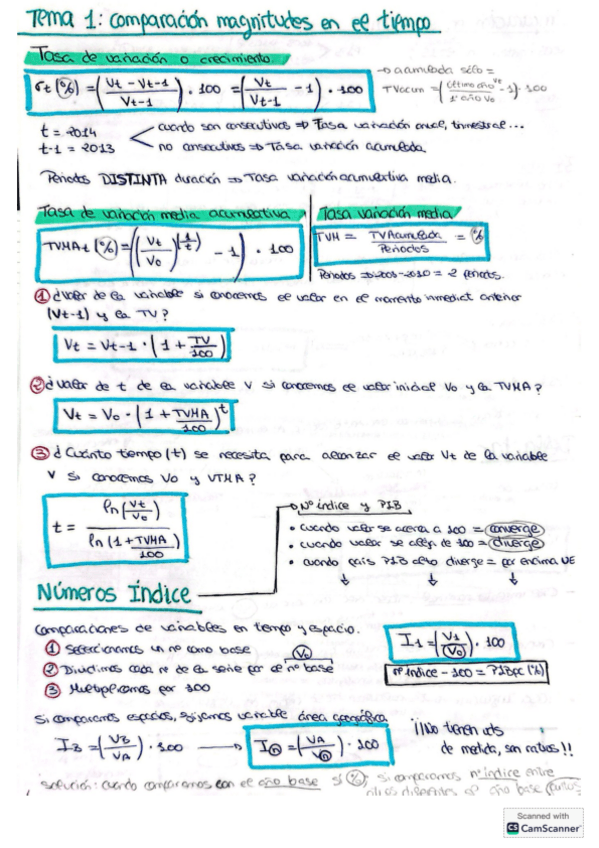 Tema 1: comparación magnitudes en el tiempo
Tasa de variación o crecimiento
σt (%) = (Vt - Vt-1 / Vt-1) · 100 = (Vt / Vt-1 - 1) · 100
→ acumulada sólo =
TVacum = (último año Vt / 1º año V0 - 1) · 100
t = 2014
t-1 = 2013
cuando son consecutivos ⇒ Tasa variación anual, trimestral...
no consecutivos ⇒ Tasa variación acumulada.
Periodos DISTINTA duración ⇒ Tasa variación acumulativa media.
Tasa de variación media acumulativa
TVMA t (%) = ((Vt / V0)^(1/t) - 1) · 100
Tasa variación media
TVM = TVAcumulada / Periodos = %
Periodos = 2 periods.
① ¿valor de la variable si conocemos el valor en el momento inmediat anterior
(Vt-1) y la TV?
Vt = Vt-1 · (1 + TV / 100)
② ¿valor de t de la variable V si conocemos el valor inicial V0 y la TVMA?
Vt = V0 · (1 + TVMA / 100)^t
③ ¿Cuánto tiempo (t) se necesita para alcanzar el valor Vt de la variable
V si conocemos V0 y VTMA?
t = ln (Vt / V0) / ln (1 + TVMA / 100)
Nº índice y PIB
• cuando valor se acerca a 100 = converge
• cuando valor se aleja de 100 = diverge
• cuando país PIB alto diverge = por encima UE
↓ ↓ ↓
Números Índice
Comparaciones de variables en tiempo y espacio.
① Seleccionamos un nº como base
② Dividimos cada nº de la serie por el nº base (V0)
③ Multiplicamos por 100
I1 = (V1 / V0) · 100
nº índice - 100 = PIBpc (%)
Si comparamos espacios, fijamos variable área geográfica
IB = (VB / VA) · 100 → I0 = (VA / V0) · 100
¡¡No tienen uds
de medida, son ratios!!
solución: cuando comparamos con el año base sí (%), si comparamos nº índice entre
diferentes al año base
Scanned with
CS CamScanner